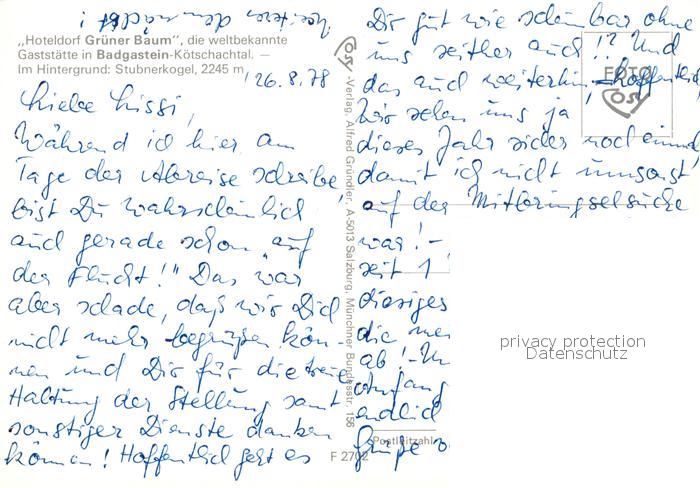 „Hoteldorf Grüner Baum", die weltbekannte
Gaststätte in Badgastein-Kötschachtal. —
Im Hintergrund: Stubnerkogel, 2245 m
26.8.78
Liebe Lissi,
Während ich hier am
Tage der Abreise schreibe,
bist Du wahrscheinlich
auch gerade schon „auf
der Flucht!" Das war
aber schade, daß wir Dich
nicht mehr begrüßen kön-
nen und Dir für die treue
Haltung der Stellung samt
sonstiger Dienste danken
können! Hoffentlich geht es
Dir gut wie scheinbar ohne
uns seither auch!? Und
das auch weiterhin – hoffentlich
wir sehen uns ja
dieses Jahr sicher noch einmal
damit ich nicht umsonst
auf der Mitbringselsuche
war! –
seit 1
diesiges
die
ab! –
Anfang
endlich
Grüße
demnächst!
Cosy-Verlag, Alfred Gründler, A-5013 Salzburg, Münchner Bundesstr. 156
FOTO
COSY
privacy protection
Datenschutz
Postleitzahl
F 2702